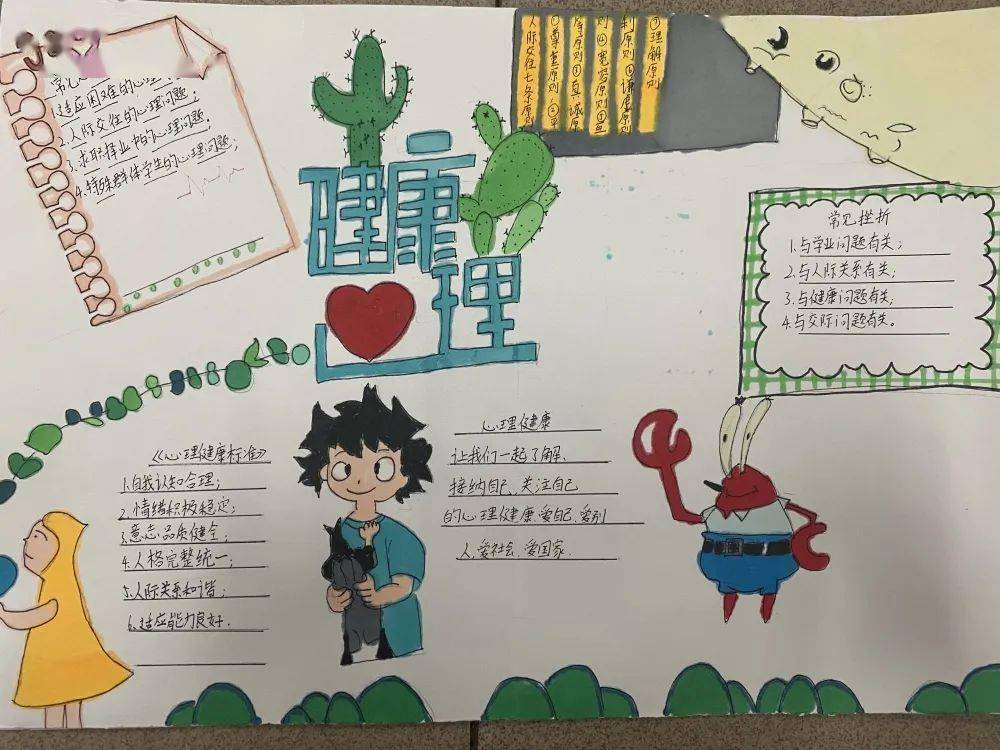 常见
1.适应困难的心理
2.人际交往的心理问题;
3.求职择业中的心理问题.
4.特殊群体学生的心理问题;
健康
理
人际交往七条原则
①尊重原则 ②平
等原则③真诚原
则④宽容原则⑤互
利原则⑥谦虚原则
⑦理解原则
常见挫折
1.与学业问题有关;
2.与人际关系有关;
3.与健康问题有关;
4.与交际问题有关。
《心理健康标准》
1.自我认知合理;
2.情绪积极稳定;
3.意志品质健全;
4.人格完整统一;
5.人际关系和谐;
6.适应能力良好.
心理健康
让我们一起了解、
接纳自己、关注自己
的心理健康.爱自己、爱别
人、爱社会、爱国家.